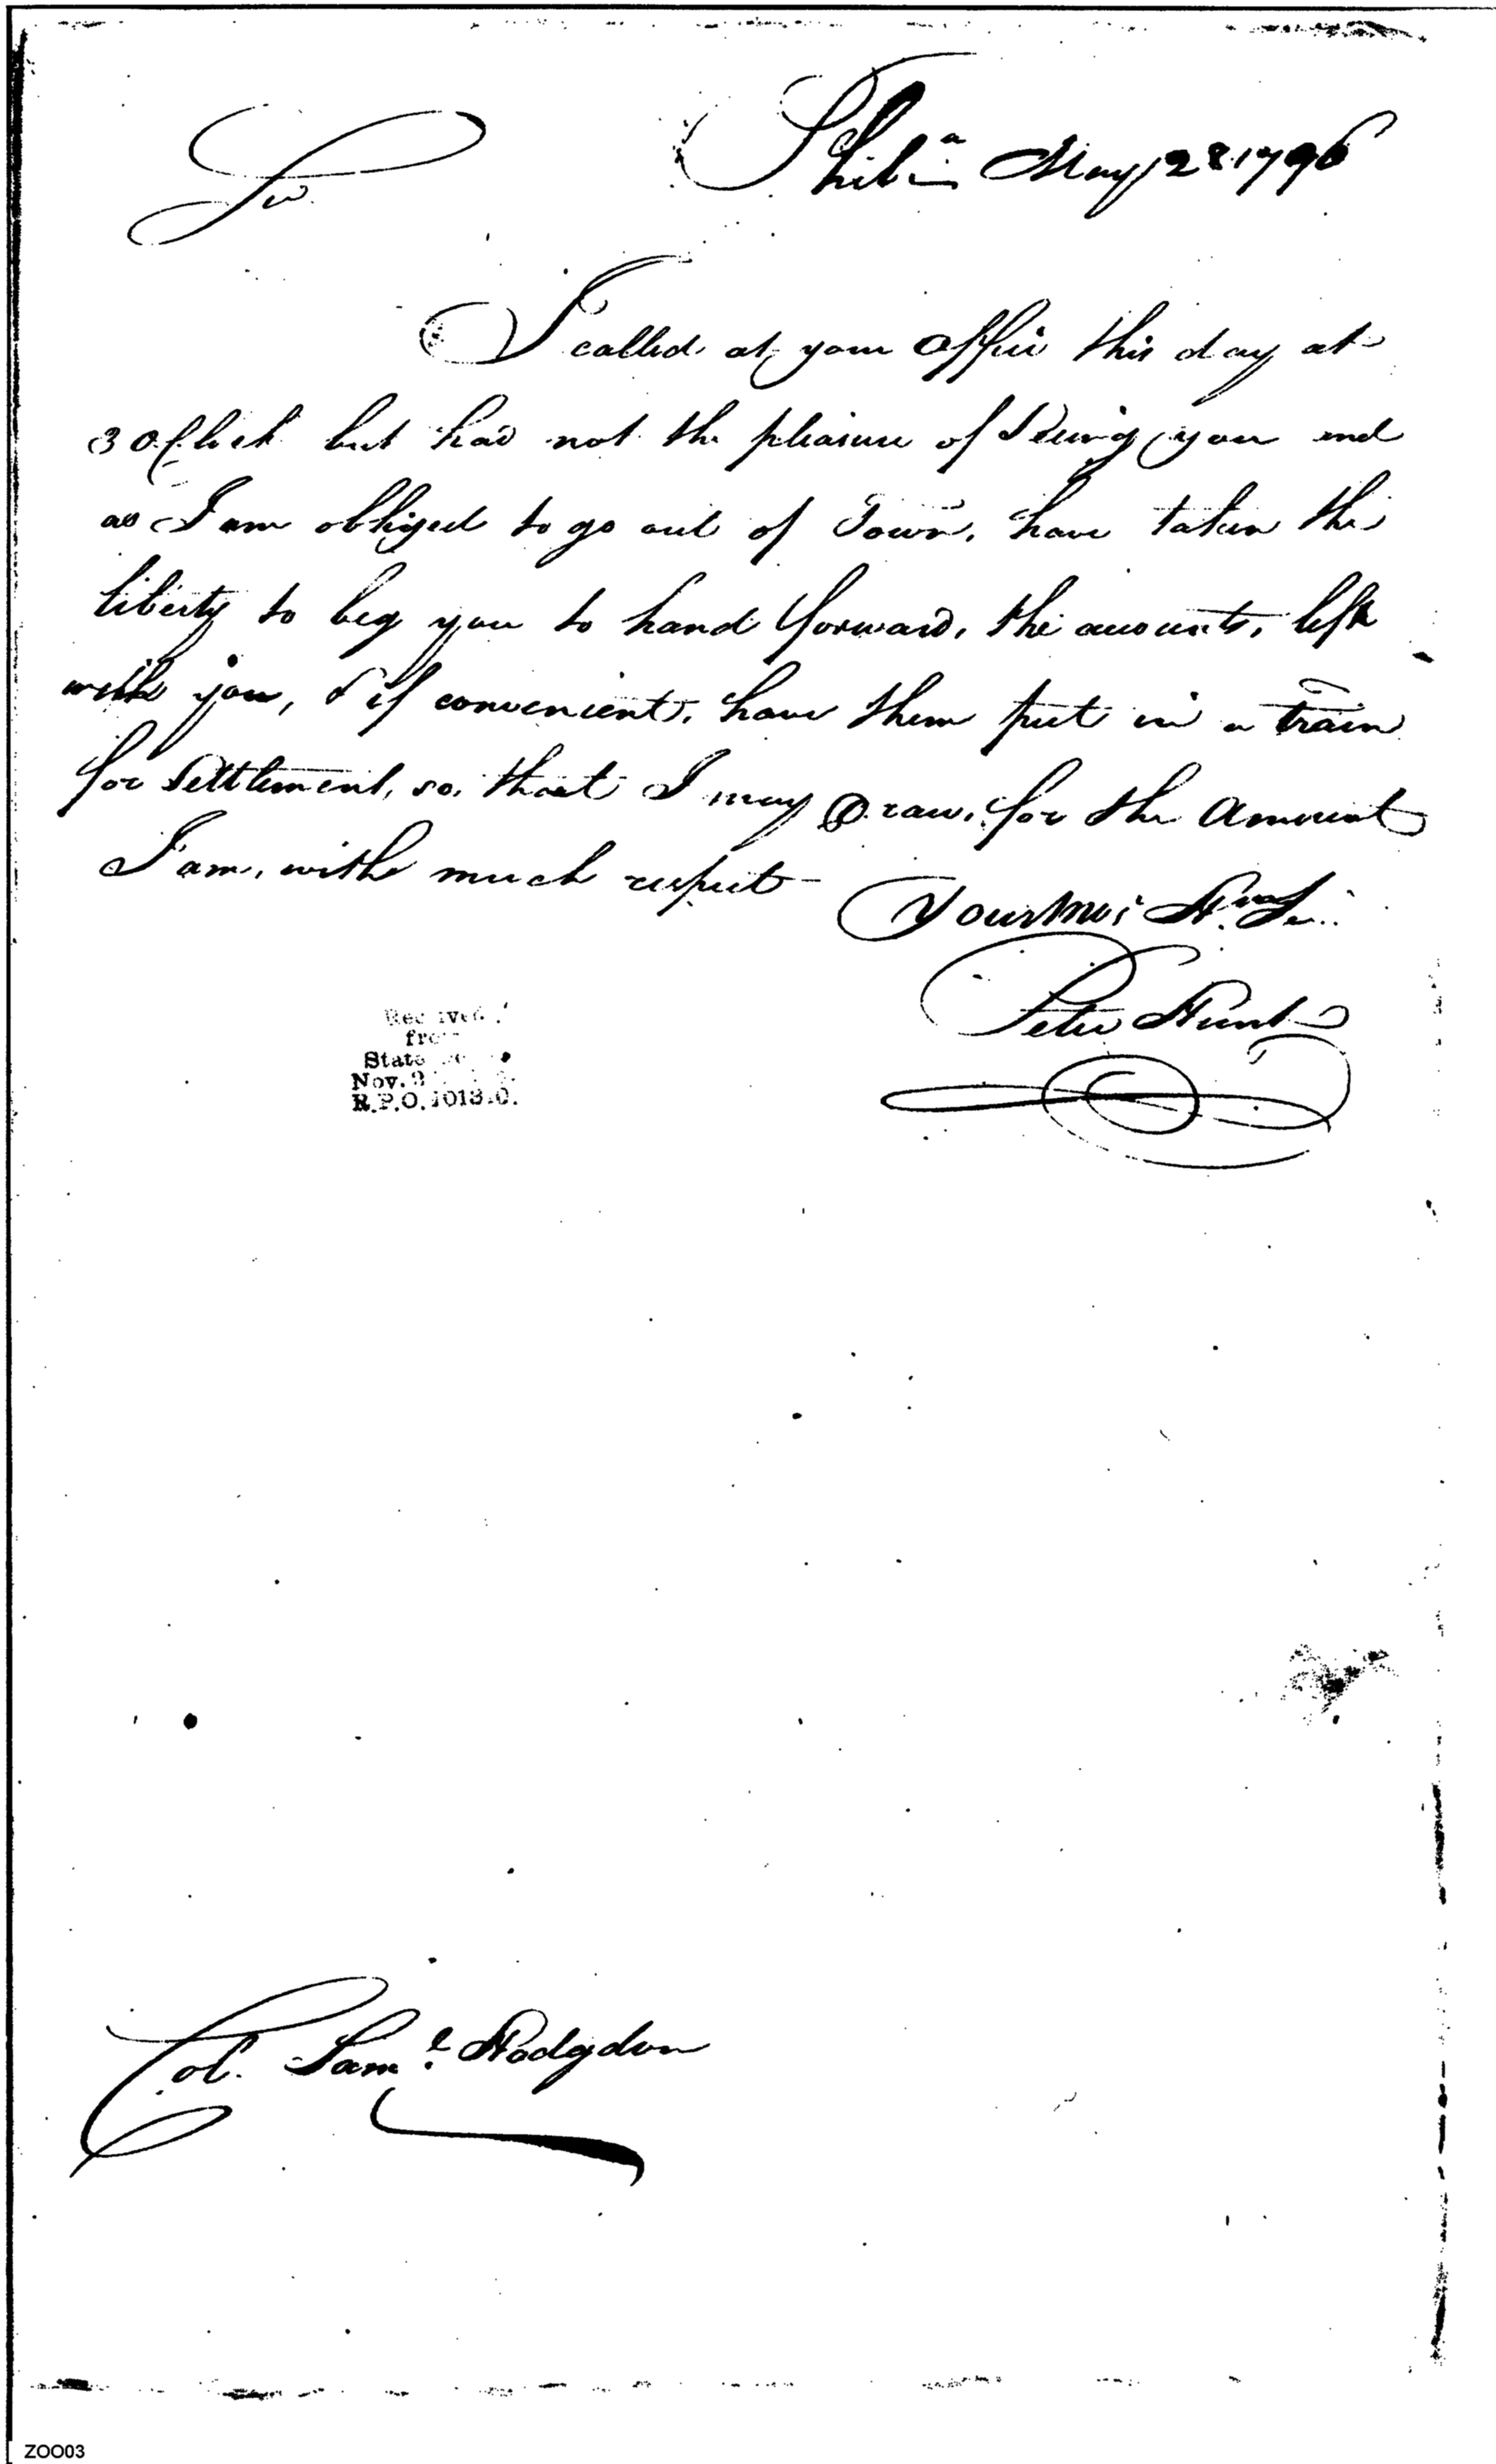 Phila May 28 1796
Sir
I called at your Office this day at
3 oClock but had not the pleasure of Seeing you and
as I am obliged to go out of Town, have taken the
liberty to beg you to hand forward, the accounts, left
with you, & if convenient, have them put in a train
for Settlement, so, that I may Draw, for the Amount
I am, with much respect
Your
Peter Hunt
Received
from
State
Nov.
R.P.O.
Col. Saml Hodgdon
ZOO03